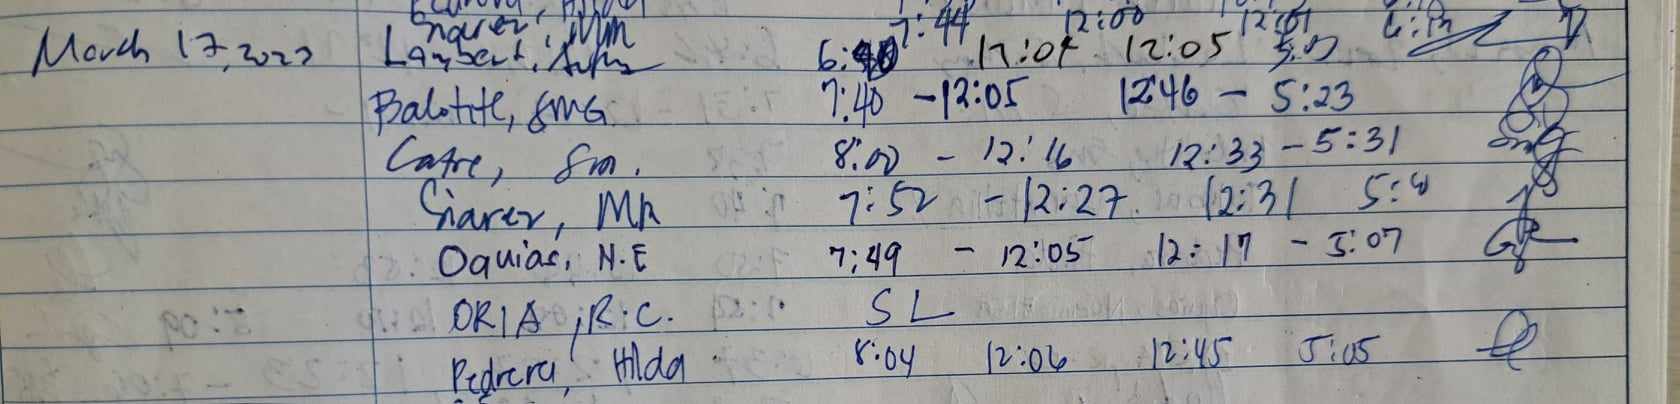 7:44 12:00 12:01
March 17, 2023 Lambert, 6:40 12:04 12:05 5:07
Balotite, SMG 7:40 - 12:05 12:46 - 5:23
Catre, Sm. 8:00 - 12:16 12:33 - 5:31
Siarez, MR 7:52 - 12:27. 12:31
Oquias, N.E 7:49 - 12:05 12:17 - 5:07
ORIA, R.C. SL
Pedrera, Hilda 8:04 12:06 12:45 5:05